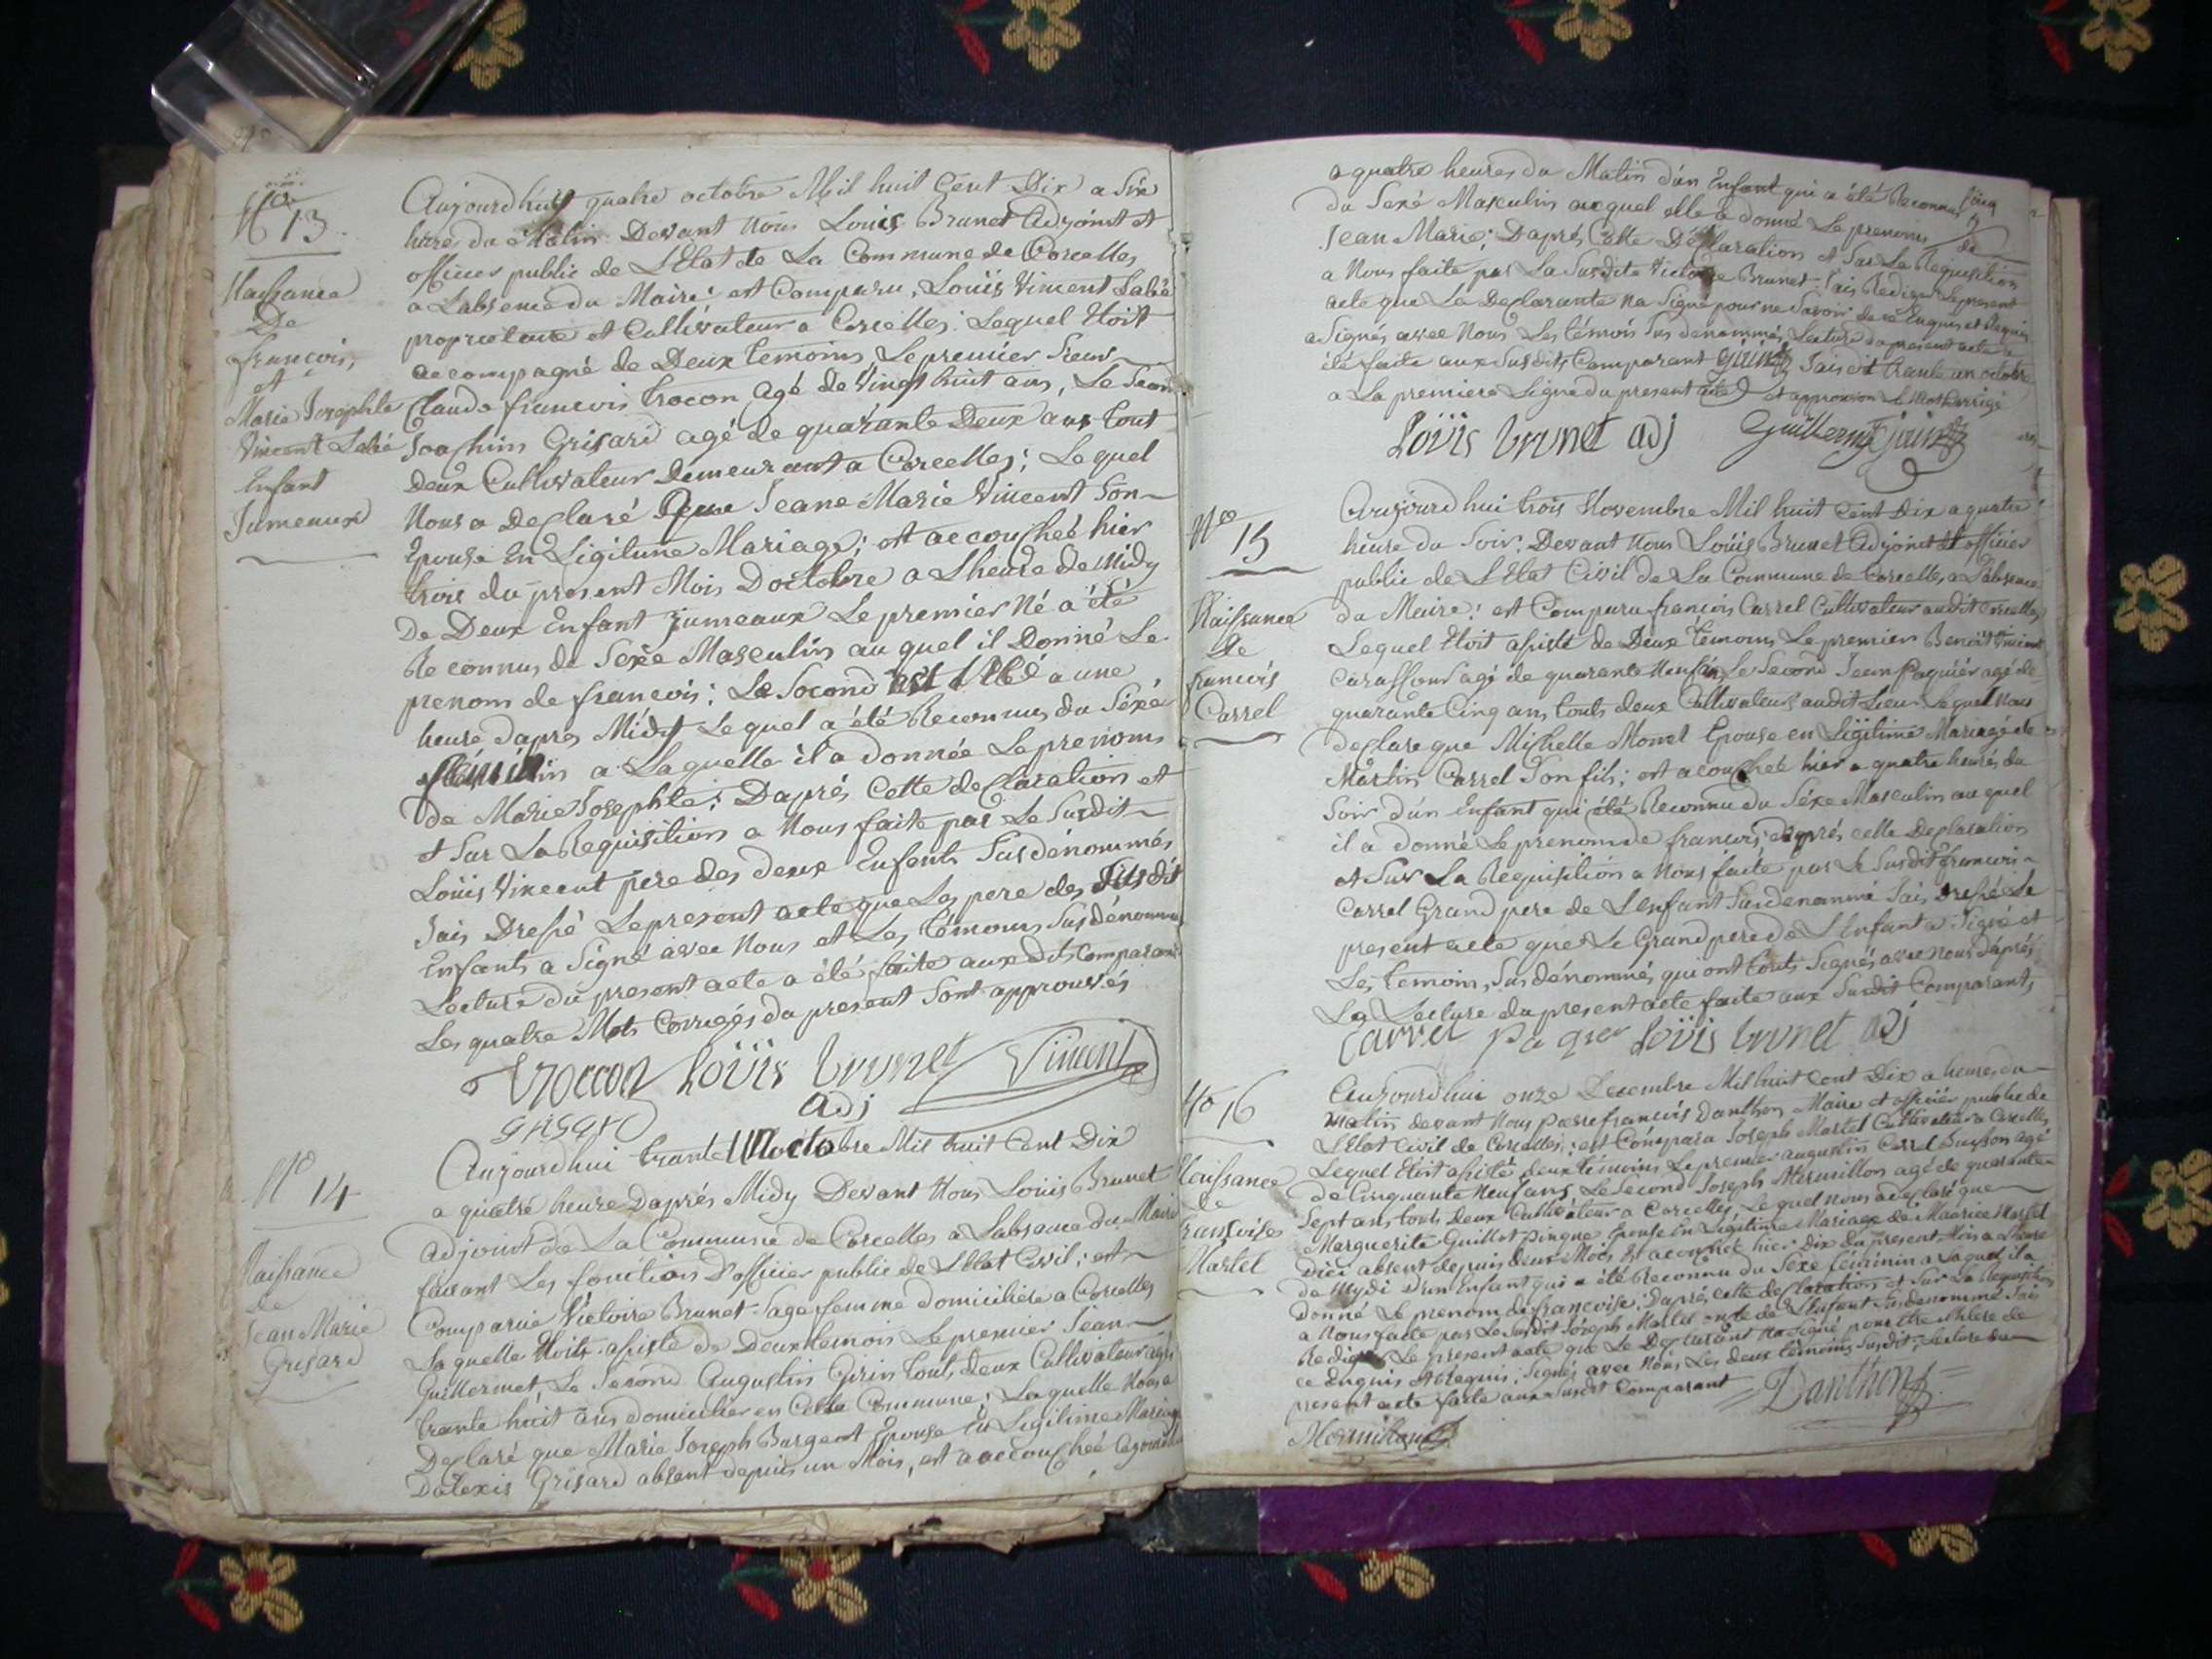 No 13.
Naissance
De
françois,
et
Marie Josephte
Vincent Labé
Enfant
Jumeaux
Aujourdhuy quatre octobre Mil huit Cent Dix a Six
hures du Matin Devant Nous Louis Brunet Adjoint et
officier public de L'Etat de La Commune de Corcelles
a Labsence du Maire; est Comparu, Louis Vincent Labé
proprietaire et Cultivateur a Corcelles: Lequel Etoit
accompagné de Deux temoins, Le premier Sieur
Claude francois trocon agé de Vingt huit ans, Le Second
Joachim Grisard agé de quarante Deux ans tout
Deux Cultivateur Demeurant a Corcelles; Lequel
Nous a Declaré Que Jeane Marie Vincent Son
Epouse En Ligitime Mariage; est accouchée hier
trois du present Mois Doctobre a Lheure de Midy
De Deux Enfant jumeaux Le premier Né a été
Reconnus du Sexe Masculin au quel il Donné Le
prenom de francois: Le Second est Née a une
heure dapres Midy Le quel a été Reconnus du Séxe
feminin a Laquelle il a donnée Le prenom
de Marie Josephte: Daprés Cette declaration et
et Sur La Requisition a Nous faite par Le Susdit
Louis Vincent pere des deux Enfants Susdénommés
Jais Dressé Le present acte que Les pere des Susdit
Enfants a Signé avec Nous et Les témoins Susdénommé
Lecture du present acte a été faite aux dits Comparant
Les quatre Mots Corrigés du present Sont approuvés
troccon Loüis brunet Vincent
adj
grisard
No 14
Naissance
de
Jean Marie
Grisard
Aujourdhui trante un octobre Mil huit Cent Dix
a quatre heure Daprés Midy Devant Nous Louis Brunet
adjoint de La Commune de Corcelles a Labsance du Maire
faisant Les fonctions D'officier public de L'Etat Civil; est
Comparue Victoire Brunet Sage femme domiciliere a Corcelles
La quelle Etoits assisté de Deux temois Le premier Jean
Guillermet, Le Second Augustin Girin tout, deux Cultivateur agés
trante huit ans domicilier en Cette Commune; Laquelle Nous a
Declaré que Marie Joseph Burgeat Epouse En Legitime Mariage
Dalexis Grisard absent depuis un Mois, est a accouchée
a quatre heures du Matin d'un Enfant qui a été Reconnus
du Sexé Masculin auquel elle a donné Le prenom de
Jean Marie; Daprés Cette Declaration et Sur La Requisition
a Nous faite par La Susdite Victoire Brunet Jais Rediger Le present
acte que La Declarante Na Signé pour ne Savoir de ce Enquis et Requis
a Signés avec Nous Les témois Sus denommés, Lecture du present acte a
été faite aux Susdits Comparant Jais dit trante un octobre
a La premiere Ligne du present acte et approuvon Le Mot Corrigé
Loüis brunet adj Guillermet
No 15
Naissance
de
francois
Carrel
Aujourdhui trois Novembre Mil huit Cent Dix a quatre
heure du Soir. Devant Nous Louis Brunet Adjoint et officier
public de L'Etat Civil de La Commune de Corcelles, a Labsence
du Maire: est Comparu françois Carrel Cultivateur audit Corcelles
Lequel Etoit assisté de Deux témoins Le premier Benoit Vincent
agé de quarante Neuf ans Le Second Jean Paquier agé de
quarante Cinq ans touts deux Cultivateur audit Lieu Lequel Nous
declare que Michelle Monet Epouse en Ligitime Mariage de
Martin Carrel Son fils; est acouchée hier a quatre heurés du
Soir d'un Enfant qui été Reconnu du Séxe Masculin au quel
il a donné Le prenom de francois, daprés cette Declaration
et Sur La Requisition a Nous faite par Le Susdit francois
Carrel Grand pere de L'Enfant Susdenommé Jais dressé Le
present acte que Le Grand pere de L'Enfant a Signé et
Les temoins, Susdénommés, qui ont touts Signés avec nous daprés
La Lecture du present acte faite aux Susdit Comparant,
Carrel paquier Loüis brunet adj
No 16
Naissance
de
françoise
Martel
Aujourdhui onze Decembre Mil huit cent Dix a heures du
matin devant Nous pierre francois Danthon Maire et officier public de
L'Etat Civil de Corcelles; est Comparu Joseph Martel Cultivateur a Corcelles
Lequel Etoit assisté deux témoins Le premier augustin Carrel Buisson agé
de Cinquante Neuf ans, Le Second Joseph Mermillon agé de quarante
Sept ans touts Deux Cultivateur a Corcelles, Le quel nous a declaré que
Marguerite Guillot pingue Epouse En Legitime Mariage de Maurice Martel
Dici absent depuis deux Mois Est acouchée hier dix du present Mois a Lheure
de Mydi D'un Enfant qui a été Reconnu du Sexe féminin a Laquel il a
Donné Le prenom de francoise; Daprés cette declaration et Sur La Requisition
a Nous faite par Le Susdit Joseph Martel oncle de L'Enfant Susdenommé Jais
Rediger Le present acte que Le Declarant Na Signé pour
ce Enquis et Requis; Signés avec Nous Les deux témoins Susdit; Lecture du
present acte faite aux Susdit Comparant Danthon
Mermillon